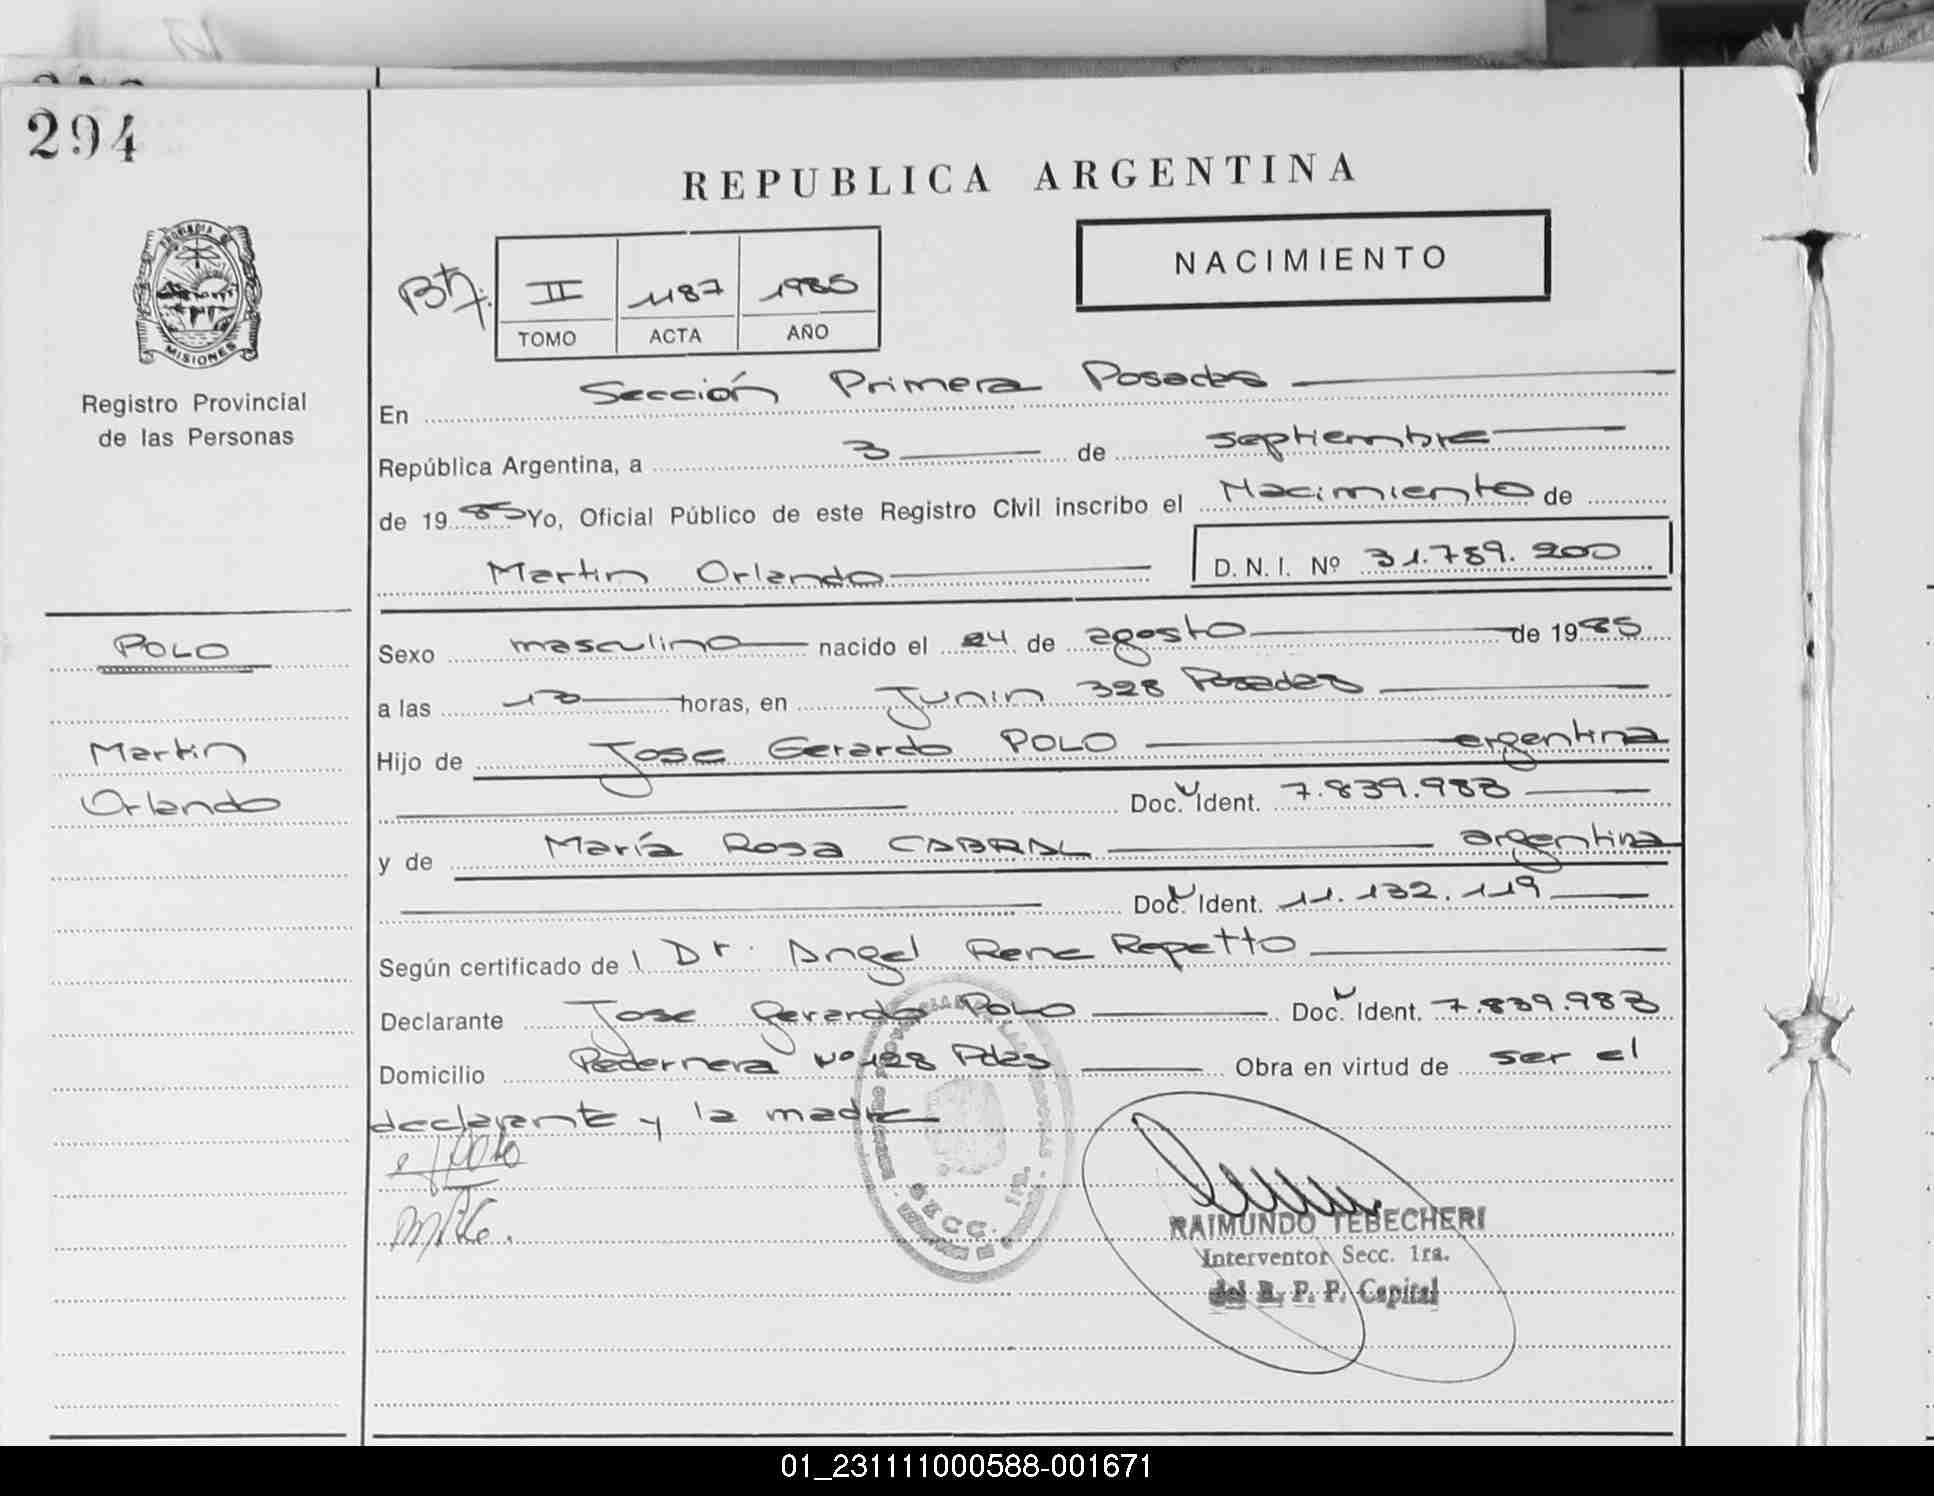 294
REPUBLICA ARGENTINA
NACIMIENTO
II 1187 1985
TOMO ACTA AÑO
PROVINCIA DE
MISIONES
Registro Provincial
de las Personas
En Sección Primera Posadas
República Argentina, a 3 de septiembre
de 1985 Yo, Oficial Público de este Registro Civil inscribo el Nacimiento de
Martin Orlando D.N.I. Nº 31.789.200
POLO
Martin
Orlando
Sexo masculino nacido el 24 de agosto de 1985
a las 13 horas, en Junin 328 Posadas
Hijo de Jose Gerardo POLO argentina
Doc. Ident. 7.839.983
y de María Rosa CABRAL argentina
Doc. Ident. 11.132.119
Según certificado de l Dr. Angel Rene Repetto
Declarante Jose Gerardo POLO Doc. Ident. 7.839.983
Domicilio Pedernera Nº 128 Pdas Obra en virtud de ser el
declarante y la madre
SECC. 1ra.
RAIMUNDO TEBECHERI
Interventor Secc. 1ra.
del R. P. P. Capital
01_231111000588-001671